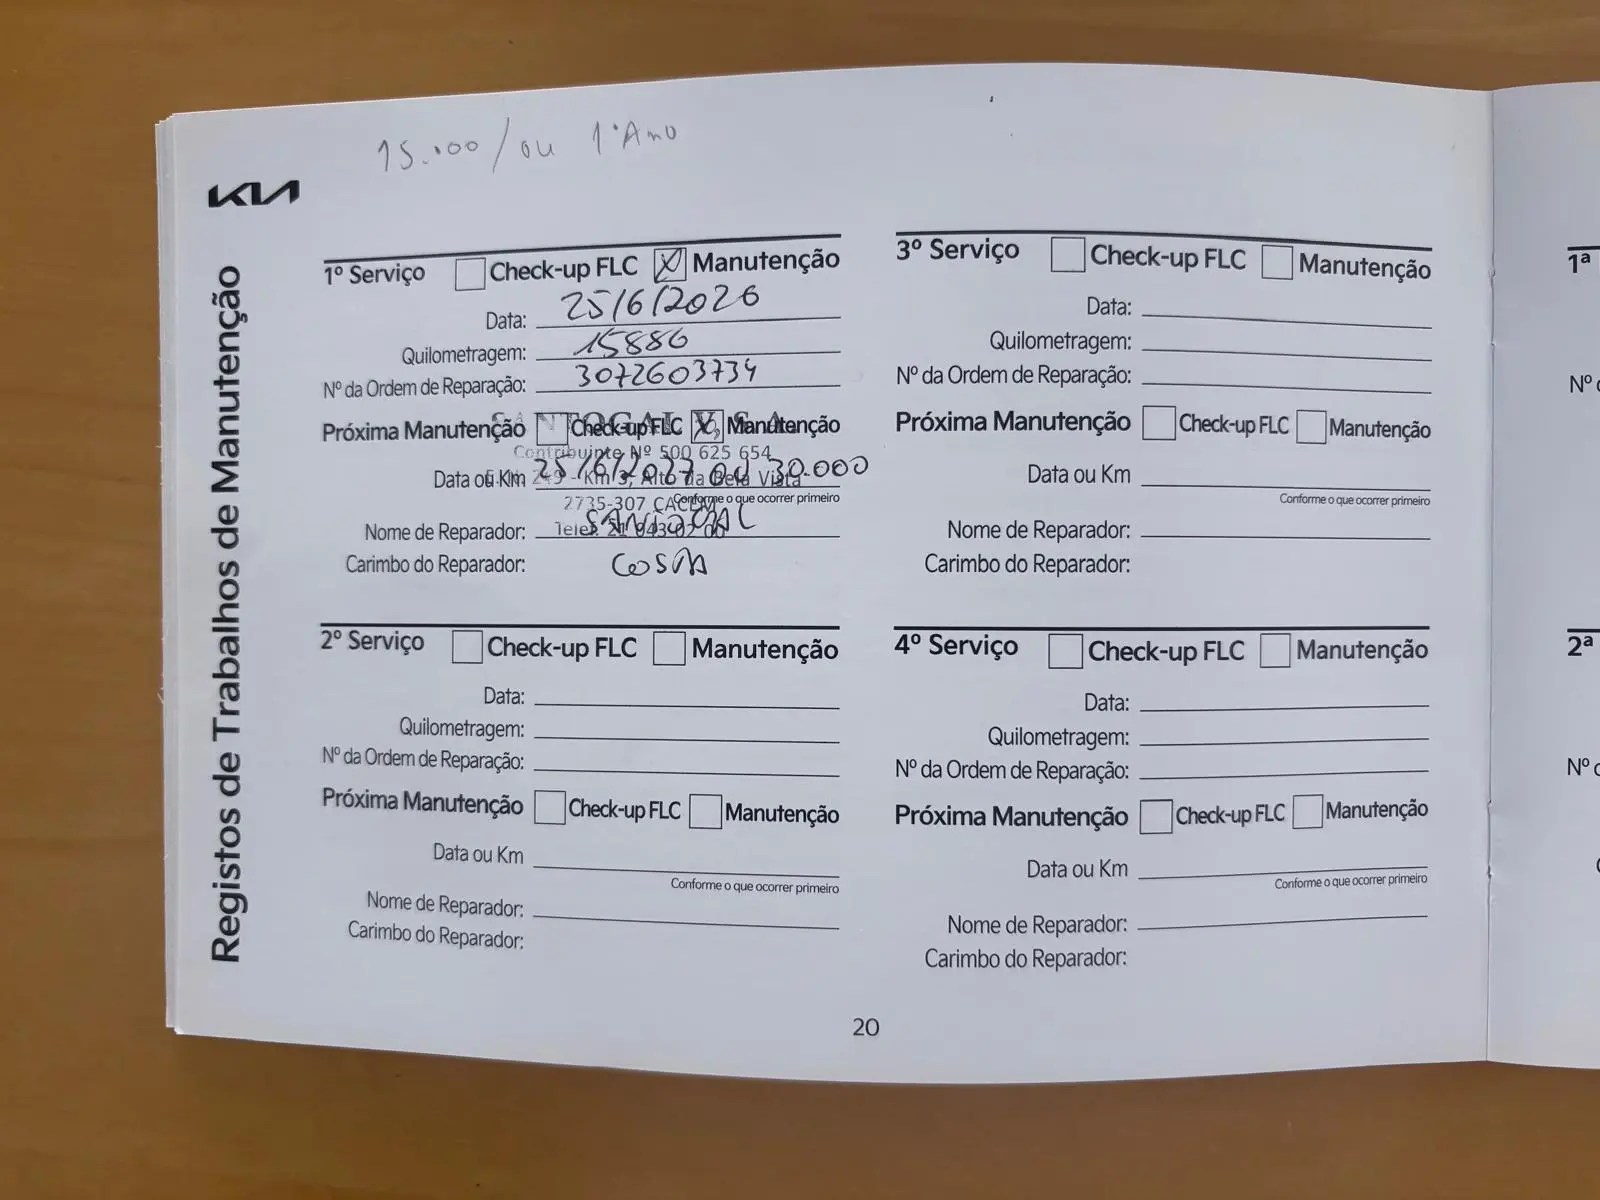 15.000 / ou 1º Ano
KIA
Registos de Trabalhos de Manutenção
1º Serviço Check-up FLC X Manutenção
Data: 25/6/2026
Quilometragem: 15886
Nº da Ordem de Reparação: 3072603734
Próxima Manutenção Check-up FLC X Manutenção
Contribuinte Nº 500 625 654
Data ou Km 25/6/2027 ou 30.000
249 - Km 3, Alto da Bela Vista
Conforme o que ocorrer primeiro
2735-307 CACEM
Nome de Reparador: SANTOGAL
Carimbo do Reparador: COSTA
2º Serviço Check-up FLC Manutenção
Data:
Quilometragem:
Nº da Ordem de Reparação:
Próxima Manutenção Check-up FLC Manutenção
Data ou Km
Conforme o que ocorrer primeiro
Nome de Reparador:
Carimbo do Reparador:
3º Serviço Check-up FLC Manutenção
Data:
Quilometragem:
Nº da Ordem de Reparação:
Próxima Manutenção Check-up FLC Manutenção
Data ou Km
Conforme o que ocorrer primeiro
Nome de Reparador:
Carimbo do Reparador:
4º Serviço Check-up FLC Manutenção
Data:
Quilometragem:
Nº da Ordem de Reparação:
Próxima Manutenção Check-up FLC Manutenção
Data ou Km
Conforme o que ocorrer primeiro
Nome de Reparador:
Carimbo do Reparador:
20
1ª
Nº
2ª
Nº